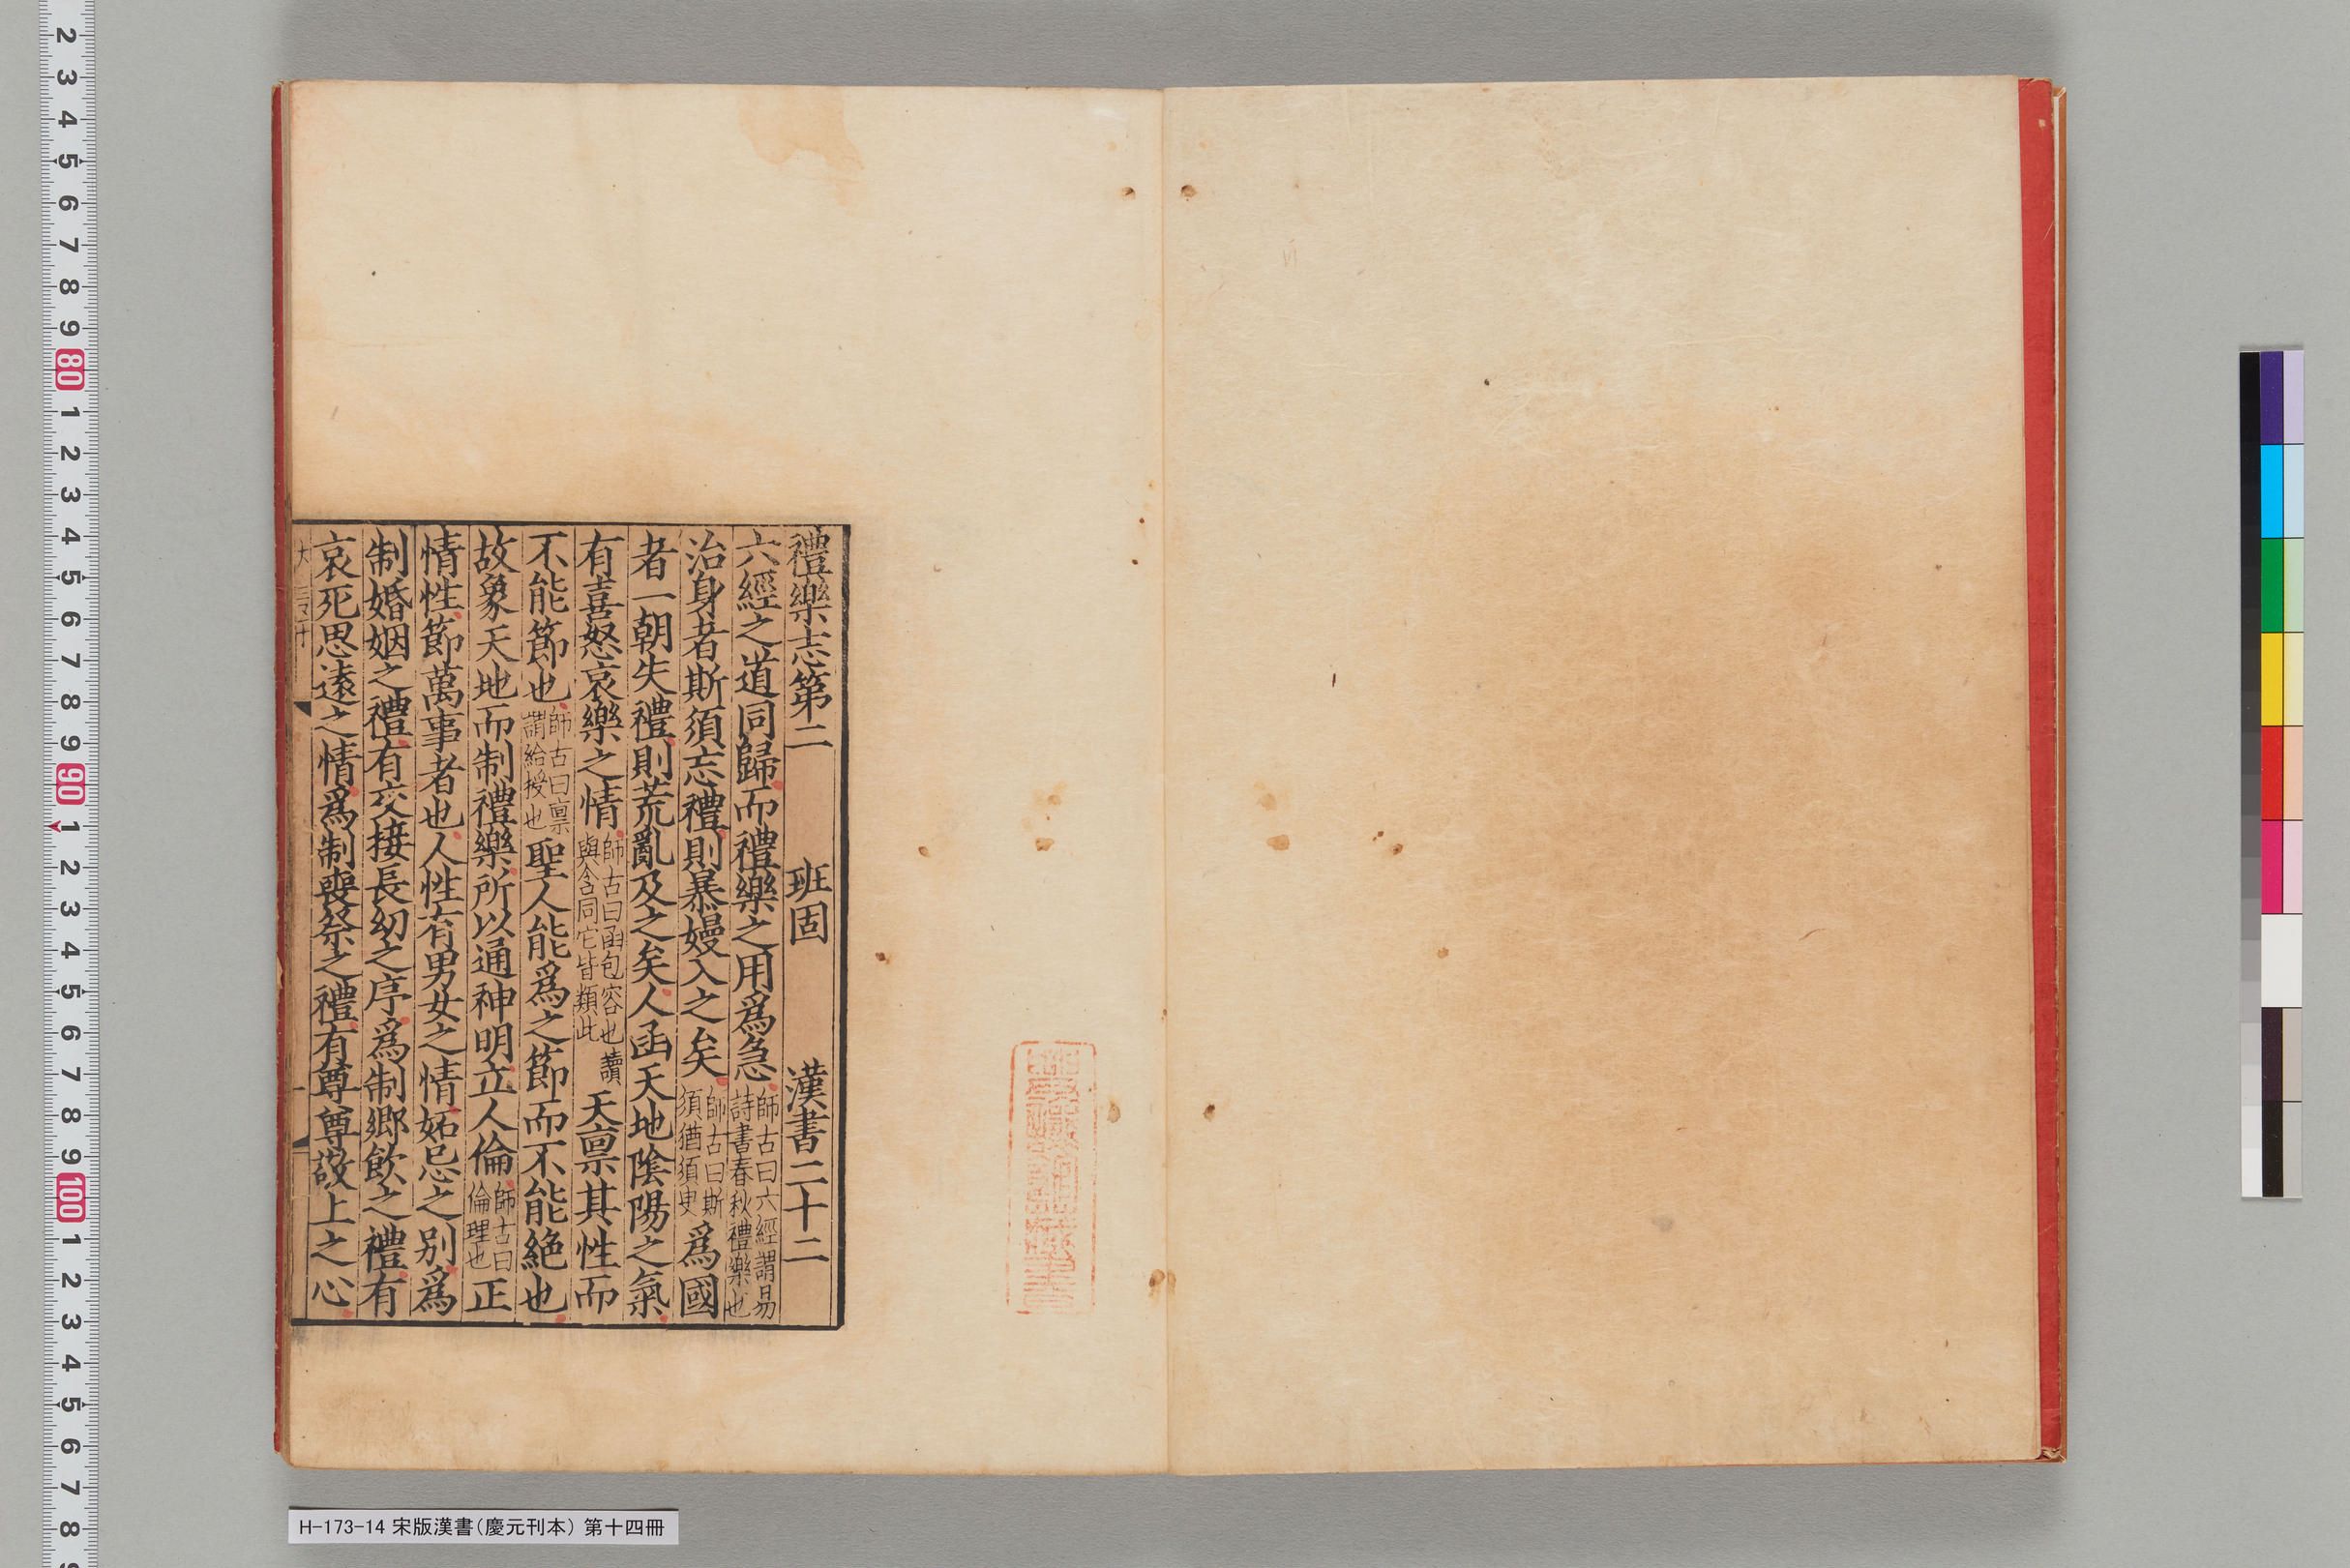 禮樂志第二　班固　漢書二十二
六經之道同歸而禮樂之用爲急師古曰六經謂易詩書春秋禮樂也
治身者斯須忘禮則暴嫚入之矣師古曰斯須猶須臾爲國
者一朝失禮則荒亂及之矣人函天地陰陽之氣
有喜怒哀樂之情師古曰函包容也讀與含同它皆類此天禀其性而
不能節也師古曰禀謂給授也聖人能爲之節而不能絶也
故象天地而制禮樂所以通神明立人倫師古曰倫理也正
情性節萬事者也人性有男女之情妬忌之别爲
制婚姻之禮有交接長幼之序爲制郷飲之禮有
哀死思遠之情爲制喪祭之禮有尊尊敬上之心
H-173-14 宋版漢書(慶元刊本) 第十四冊
2
3
4
5
6
7
8
9
80
1
2
3
4
5
6
7
8
9
90
1
2
3
4
5
6
7
8
9
100
1
2
3
4
5
6
7
8